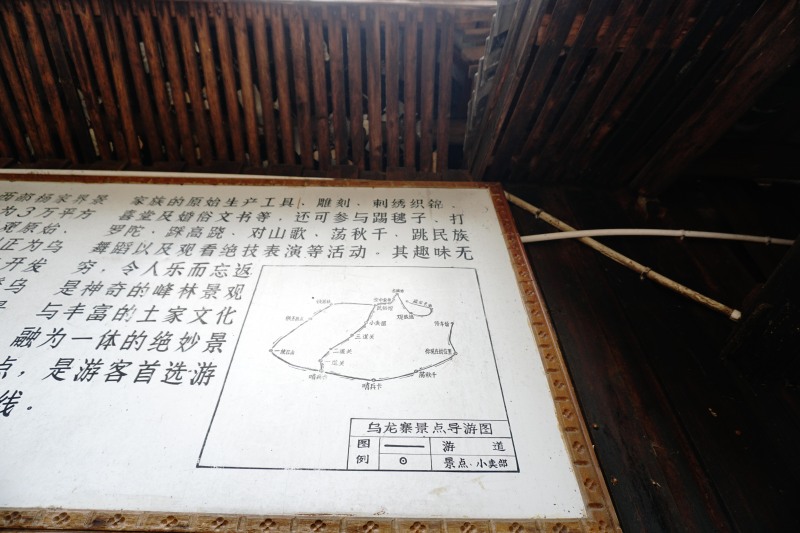 西部杨家界景
为3万平方
原始.
正为乌
开发
乌
家族的原始生产工具、雕刻、刺绣织锦,
喜堂及婚俗文书等,还可参与踢毽子、打
罗陀、踩高跷、对山歌、荡秋千、跳民族
舞蹈以及观看绝技表演等活动.其趣味无
穷,令人乐而忘返
是神奇的峰林景观
与丰富的土家文化
融为一体的绝妙景
点,是游客首选游
线.
小卖部
三道关
二道关
一道关
哨兵卡
哨兵卡
荡秋千
停车场
乌龙寨景点导游图
图例
游 道
景点·小卖部